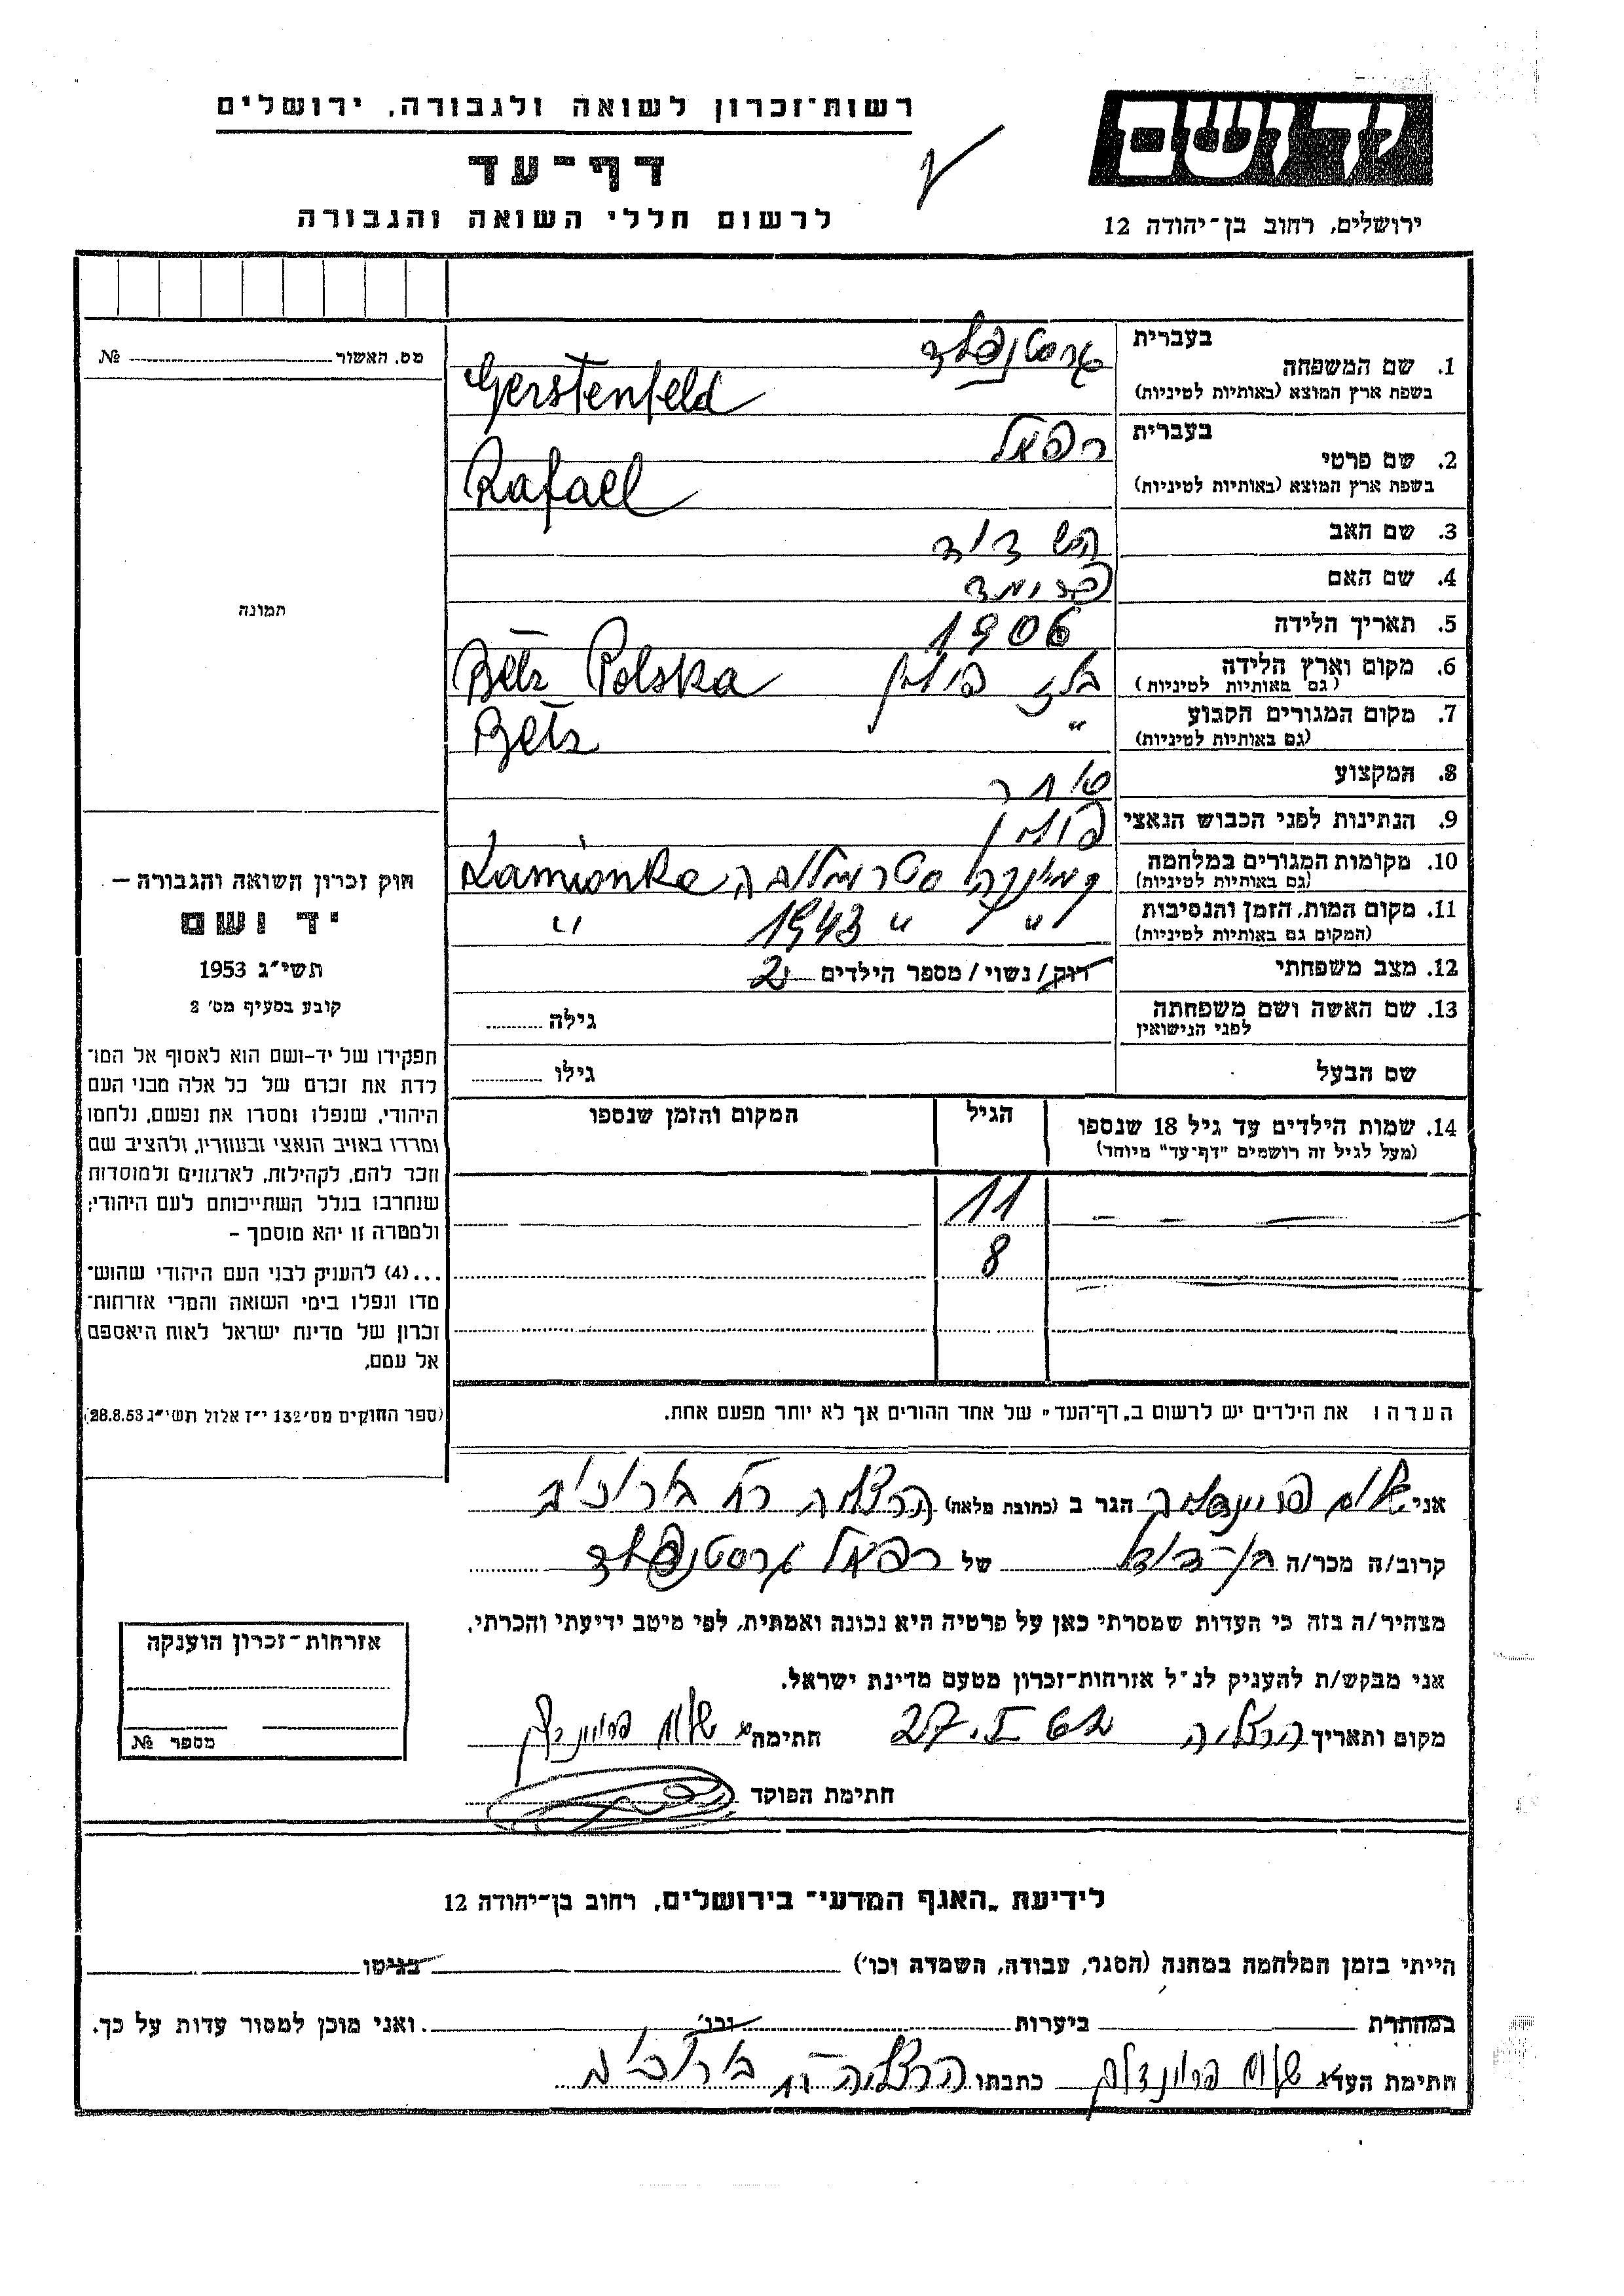 יד ושם
ירושלים, רחוב בן־יהודה 12
רשות־זכרון לשואה ולגבורה, ירושלים
דף־עד
לרשום חללי השואה והגבורה
מס. האשור № 
1. שם המשפחה
בעברית
גרסטנפלד
בשפת ארץ המוצא (באותיות לטיניות)
Gerstenfeld
2. שם פרטי
בעברית
רפאל
בשפת ארץ המוצא (באותיות לטיניות)
Rafael
3. שם האב
הש דוד
4. שם האם
5. תאריך הלידה
1906
6. מקום וארץ הלידה
(גם באותיות לטיניות)
בלז פולין Bełz Polska
7. מקום המגורים הקבוע
(גם באותיות לטיניות)
" Bełz
8. המקצוע
סוחר
9. הנתינות לפני הכבוש הנאצי
פולין
10. מקומות המגורים במלחמה
(גם באותיות לטיניות)
קמיונקה סטרומילובה Kamionka
11. מקום המות, הזמן והנסיבות
(המקום גם באותיות לטיניות)
" " 1943 "
12. מצב משפחתי
רוק/נשוי/מספר הילדים 2
13. שם האשה ושם משפחתה
לפני הנישואין
גילה
שם הבעל
גילו
14. שמות הילדים עד גיל 18 שנספו
(מעל לגיל זה רושמים "דף־עד" מיוחד)
הגיל
המקום והזמן שנספו
11
8
הערה: את הילדים יש לרשום ב„דף־העד" של אחד ההורים אך לא יותר מפעם אחת.
תמונה
חוק זכרון השואה והגבורה –
יד ושם
תשי"ג 1953
קובע בסעיף מס' 2
תפקידו של יד-ושם הוא לאסוף אל המו־
לדת את זכרם של כל אלה מבני העם
היהודי, שנפלו ומסרו את נפשם, נלחמו
ומרדו באויב הנאצי ובעוזריו, ולהציב שם
וזכר להם, לקהילות, לארגונים ולמוסדות
שנחרבו בגלל השתייכותם לעם היהודי;
ולמטרה זו יהא מוסמך –
...(4) להעניק לבני העם היהודי שהוש־
מדו ונפלו בימי השואה והמרי אזרחות־
זכרון של מדינת ישראל לאות היאספם
אל עמם.
(ספר החוקים מס' 132 י"ז אלול תשי"ג 28.8.53)
אני שלום הגר ב (כתובת מלאה) הרצליה רח
קרוב/ה מכר/ה בן-דוד של רפאל גרסטנפלד
מצהיר/ה בזה כי העדות שמסרתי כאן על פרטיה היא נכונה ואמתית, לפי מיטב ידיעתי והכרתי.
אני מבקש/ת להעניק לנ"ל אזרחות־זכרון מטעם מדינת ישראל.
מקום ותאריך הרצליה 27.I. חתימה שלום
חתימת הפוקד
אזרחות־זכרון הוענקה
מספר №
לידיעת „האגף המדעי" בירושלים, רחוב בן־יהודה 12
הייתי בזמן המלחמה במחנה (הסגר, עבודה, השמדה וכו') בגיטו
במחתרת ביערות וכו' ואני מוכן למסור עדות על כך.
חתימת העד שלום כתבתו הרצליה רח